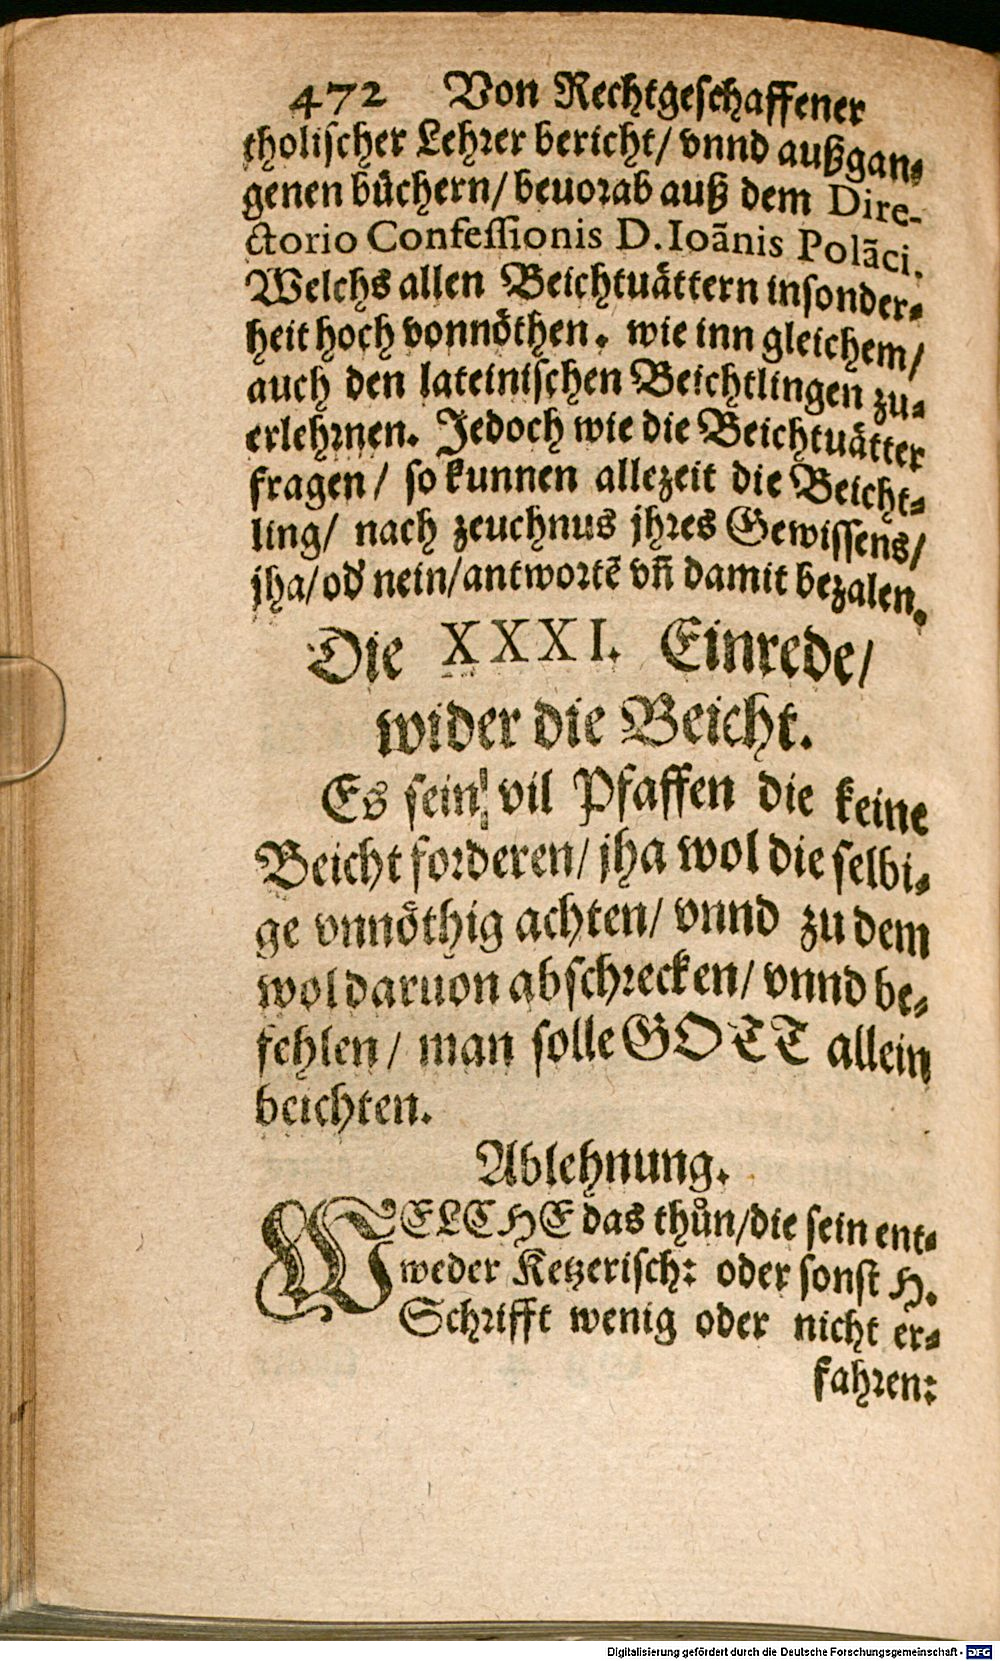 472 Von Rechtgeſchaffener
tholiſcher Lehrer bericht/ vnnd außgan-
genen bůchern/ beuorab auß dem Dire-
ctorio Confeſſionis D. Ioãnis Polãci.
Welchs allen Beichtuåttern inſonder-
heit hoch vonnöthen. wie inn gleichem/
auch den lateiniſchen Beichtlingen zu-
erlehrnen. Jedoch wie die Beichtuåtter
fragen/ ſo kunnen allezeit die Beicht-
ling/ nach zeuchnus jhres Gewiſſens/
jha/ od' nein/ antwortẽ vñ damit bezalen.
Die XXXI. Einrede/
wider die Beicht.
Es ſein vil Pfaffen die keine
Beicht forderen/ jha wol die ſelbi-
ge vnnöthig achten/ vnnd zu dem
wol daruon abſchrecken/ vnnd be-
fehlen/ man ſolle GOTT allein
beichten.
Ablehnung.
WELCHE das thůn/ die ſein ent-
weder Ketzeriſch: oder ſonſt H.
Schrifft wenig oder nicht er-
fahren:
Digitalisierung gefördert durch die Deutsche Forschungsgemeinschaft - DFG